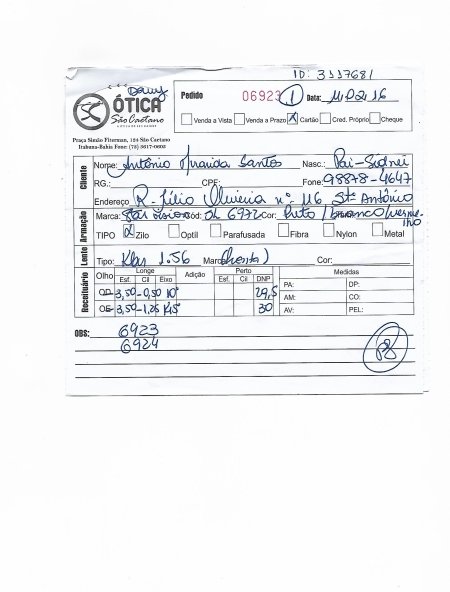 ID: 3337681
Dany
ÓTICA
São Caetano
Praça Simão Fiterman, 124 São Caetano
Itabuna-Bahia Fone: (73) 3617-0603
Pedido 06923 1 Data: 11.02.16
Venda a Vista Venda a Prazo X Cartão Cred. Próprio Cheque
Cliente
Nome: Antônio Santos Nasc.: Pai-Sidnei
RG.: CPF: Fone: 98878-4647
Endereço R. Júlio Oliveira nº 116 Stº Antônio
Armação
Marca: Cód: 6972 Cor: Preto/branco/vermelho
TIPO X Zilo Optil Parafusada Fibra Nylon Metal
Lente
Tipo: 1.56 Marca: Cor:
Receituário
Olho Longe Adição Perto Medidas
Esf. Cil Eixo Esf. Cil DNP PA: DP:
OD 3,50 -0,50 10° 29,5 AM: CO:
OE 3,50 -1,25 30 AV: PEL:
OBS: 6923
6924